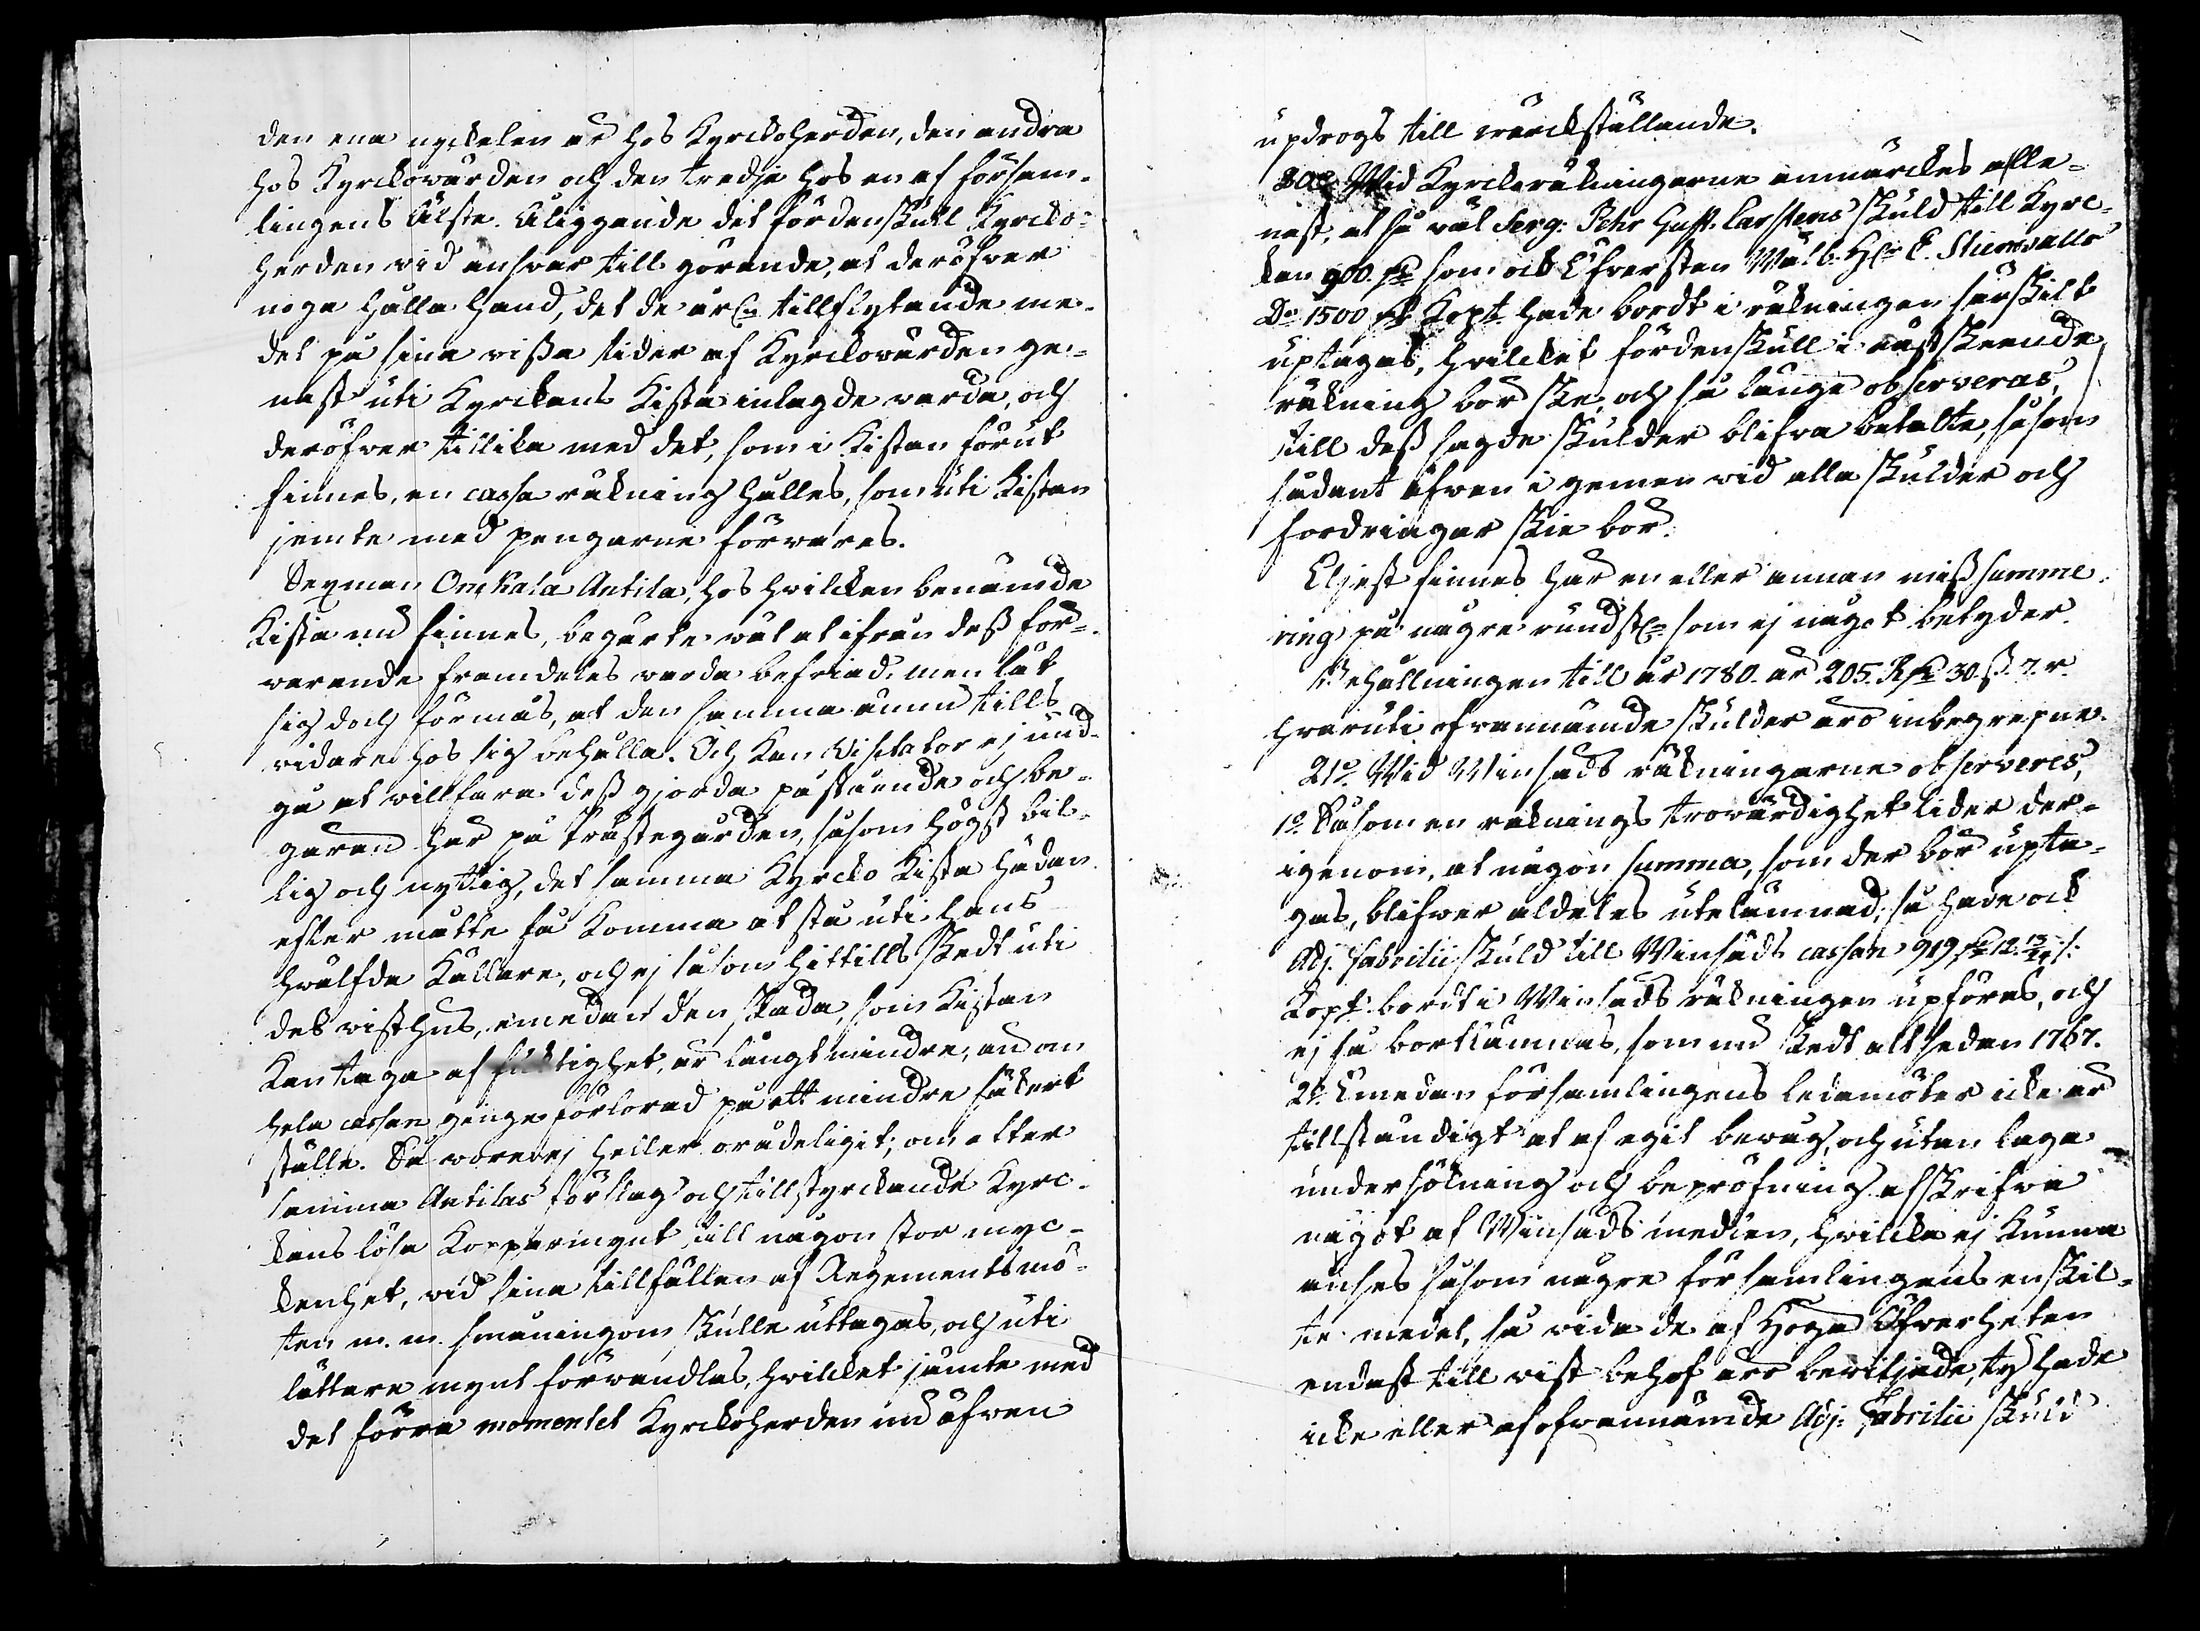 den ena nyckelen är hos Kyrckoherden, den andra
hos Kyrckowärden och den tredje hos en af försam-
lingens Älste. Åliggande det fördenskull Kyrcko-
herden vid ansvar till görande, at deröfver
noga hålla hand, det de årl. tillflytande me-
del på sina wissa tider af Kyrckowärden ge-
nast uti Kyrckans Kista inlagde warda, och
deröfver tillika med det, som i Kistan förut
finnes, en cassa räkning hålles, som uti Kistan
jemte med pengarne förwares.
Sexman Antila, hos hvilcken benämde
Kista nu finnes, begärte wäl at ifrån dess för-
warande framdeles warda befriad, men lät
sig doch förmås, at den samma ännu tills
vidare hos sig behålla. Och kan Visitator ej und-
gå at villfara dess gjorda påstående och be-
gäran här på Prästegården, såsom högst bil-
lig och nyttig, det samma Kyrcko Kista hädan
efter måtte få komma at stå uti hans
hwälfda Källare, och ej såsom hittills skedt uti
des wisthus, emedan den skada, som Kistan
kan taga af fucktighet, är långt mindre, än om
hela cassan ginge förlorad på ett mindre säkert
ställe. Så wore ej heller orådeligit, om efter
samma Antilas förslag och tillstyrckande Kyrc-
kans lösa Kopparmynt till någon stor myc-
kenhet, vid sina tillfällen af Regementsmö-
ten m. m. småningom skulle uttagas, och uti
lättare mynt förwandlas, hvilcket jämte med
det förra momentet Kyrckoherden nu äfven
updrogs till wärckställande.
20:o Wid Kyrckoräkningarne anmärckes alle-
nast, at så väl Serg: Pehr Gust. Carstens skuld till Kyrc-
kan 900. som ock Öfversten Wälb. H:r E. Stiernvalls
D:o 1500 Kopt. hade bordt i räkningen särskilt
uptagas, hvilcket fördenskull i näst skeende
räkning bör ske, och så länge observeras,
till dess sagde skulder blifva betalte, såsom
sådant äfwen i gemen vid alla skulder och
fordringar skie bör.
Eljest finnes här en eller annan miss summe-
ring på någre rundst. som ej något betyder.
Behållningen till år 1780. är 205. R 30. ß. 7. r.
hvaruti ofvannämde skulder äro inbegrepne.
21:o Wid Winsäds räkningarne observeres,
1:o Såsom en räknings trowärdighet lider der-
igenom, at någon summa, som der bör upta-
gas, blifwer aldeles utelämnad; så hade ock
Adj. Fabritii skuld till Winsäds cassan 919
Kopt. bordt i Winsäds räkningen upföres, och
ej så bortlämnas, som nu skedt alt sedan 1767.
2:o Emedan församlingens ledamöter icke är
tillståndigt at af egit bewåg, och utan laga
undersökning och bepröfning afskrifva
något af Winsäds medlen, hvilcka ej kunna
anses såsom någre församlingens enskil-
te medel, så vida de af Höga Öfverheten
endast till wist behof äro beviljade, ty hade
icke eller af ofvannämde Adj: Fabritii skuld